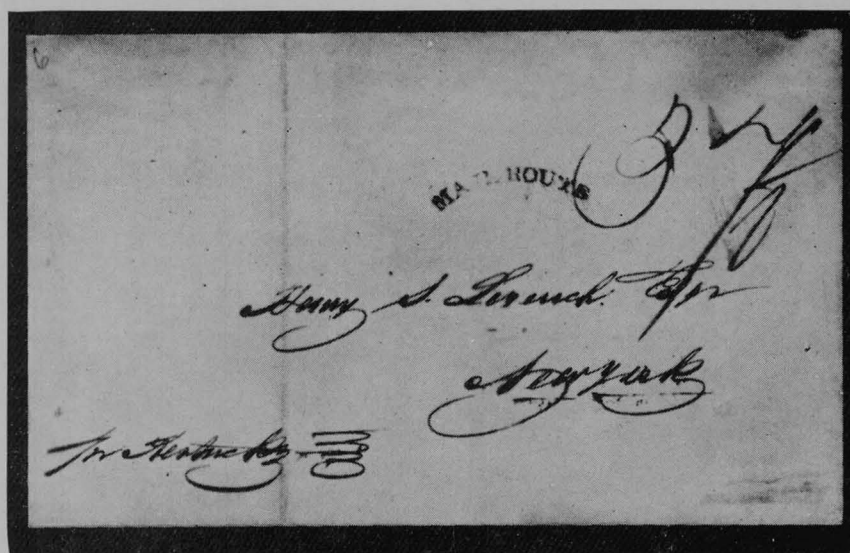 6
MAIL ROUTE
Henry S. Leverich. Esqr
New York
pr Kentucky